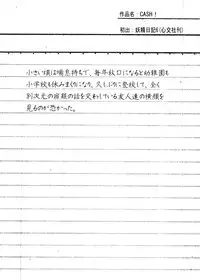 作品名：CASH！
初出：妖精日記6（心交社刊）
小さい頃は喘息持ちで、毎年秋口になると幼稚園も
小学校も休みまくりになり、久しぶりに登校して、全く
別次元の宿題の話を交わしている友人達の横顔を
見るのが恐かった。